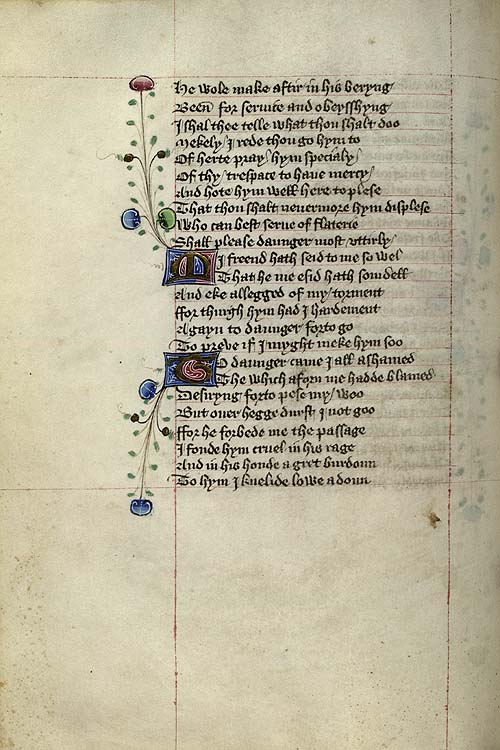 He wole make aftir in his beryng
Been for seruice and obeysshyng
I shal thee telle what thou shalt doo
Mekely I rede thou go hym to
Of herte pray hym specialy
Of thy trespace to haue mercy
And hote hym well here to plese
That thou shalt neuermore hym displese
Who can best serue of flaterie
Shall please daunger most vttirly
MI freend hath seid to me so wel
That he me esid hath somdell
And eke allegged of my torment
ffor thurgh hym had I hardement
Agayn to daunger forto go
To preve if I myght meke hym soo
TO daunger came I all ashamed
The which aforn me hadde blamed
Desiryng forto pese my woo
But ouer hegge durst I not goo
ffor he forbede me the passage
I fonde hym cruel in his rage
And in his honde a gret burdoun
To hym I knelide lowe adoun